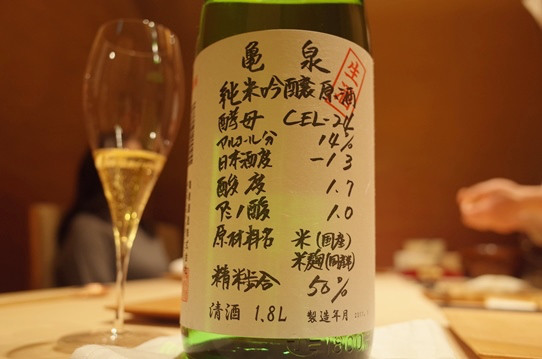 亀泉
生酒
純米吟醸原酒
酵母 CEL-24
アルコール分 14%
日本酒度 -13
酸度 1.7
アミノ酸 1.0
原材料名 米(国産)
米麹(国産米)
精米歩合 50%
清酒 1.8L 製造年月